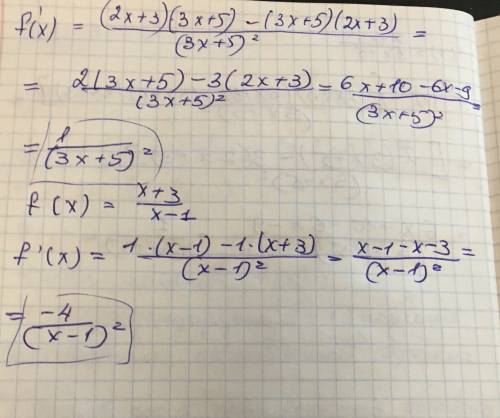 f'(x) = (2x+3)(3x+5) - (3x+5)(2x+3) / (3x+5)² =
= 2(3x+5) - 3(2x+3) / (3x+5)² = 6x+10-6x-9 / (3x+5)² =
= 1 / (3x+5)²
f(x) = x+3 / x-1
f'(x) = 1·(x-1) - 1·(x+3) / (x-1)² = x-1-x-3 / (x-1)² =
= -4 / (x-1)²